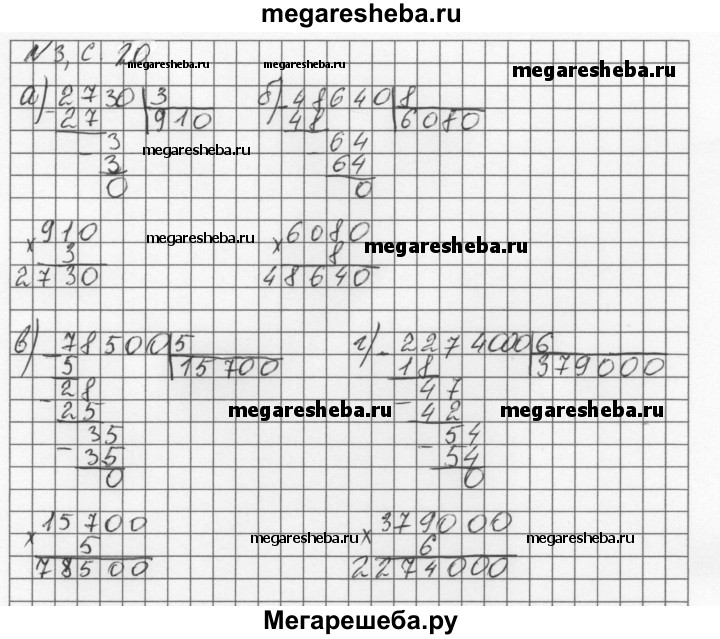 megaresheba.ru
N3, с. 20
megaresheba.ru megaresheba.ru megaresheba.ru
а) -2730 3 б) -48640 8
27 910 48 6080
-3 megaresheba.ru -64
3 64
0 0
×910 megaresheba.ru ×6080 megaresheba.ru
3 8
2730 48640
в) -78500 5 г) -2274000 6
5 15700 18 379000
-28 -47
25 megaresheba.ru 42 megaresheba.ru
-35 -54
35 54
0 0
×15700 megaresheba.ru ×379000 megaresheba.ru
5 6
78500 2274000
Мегарешеба.ру